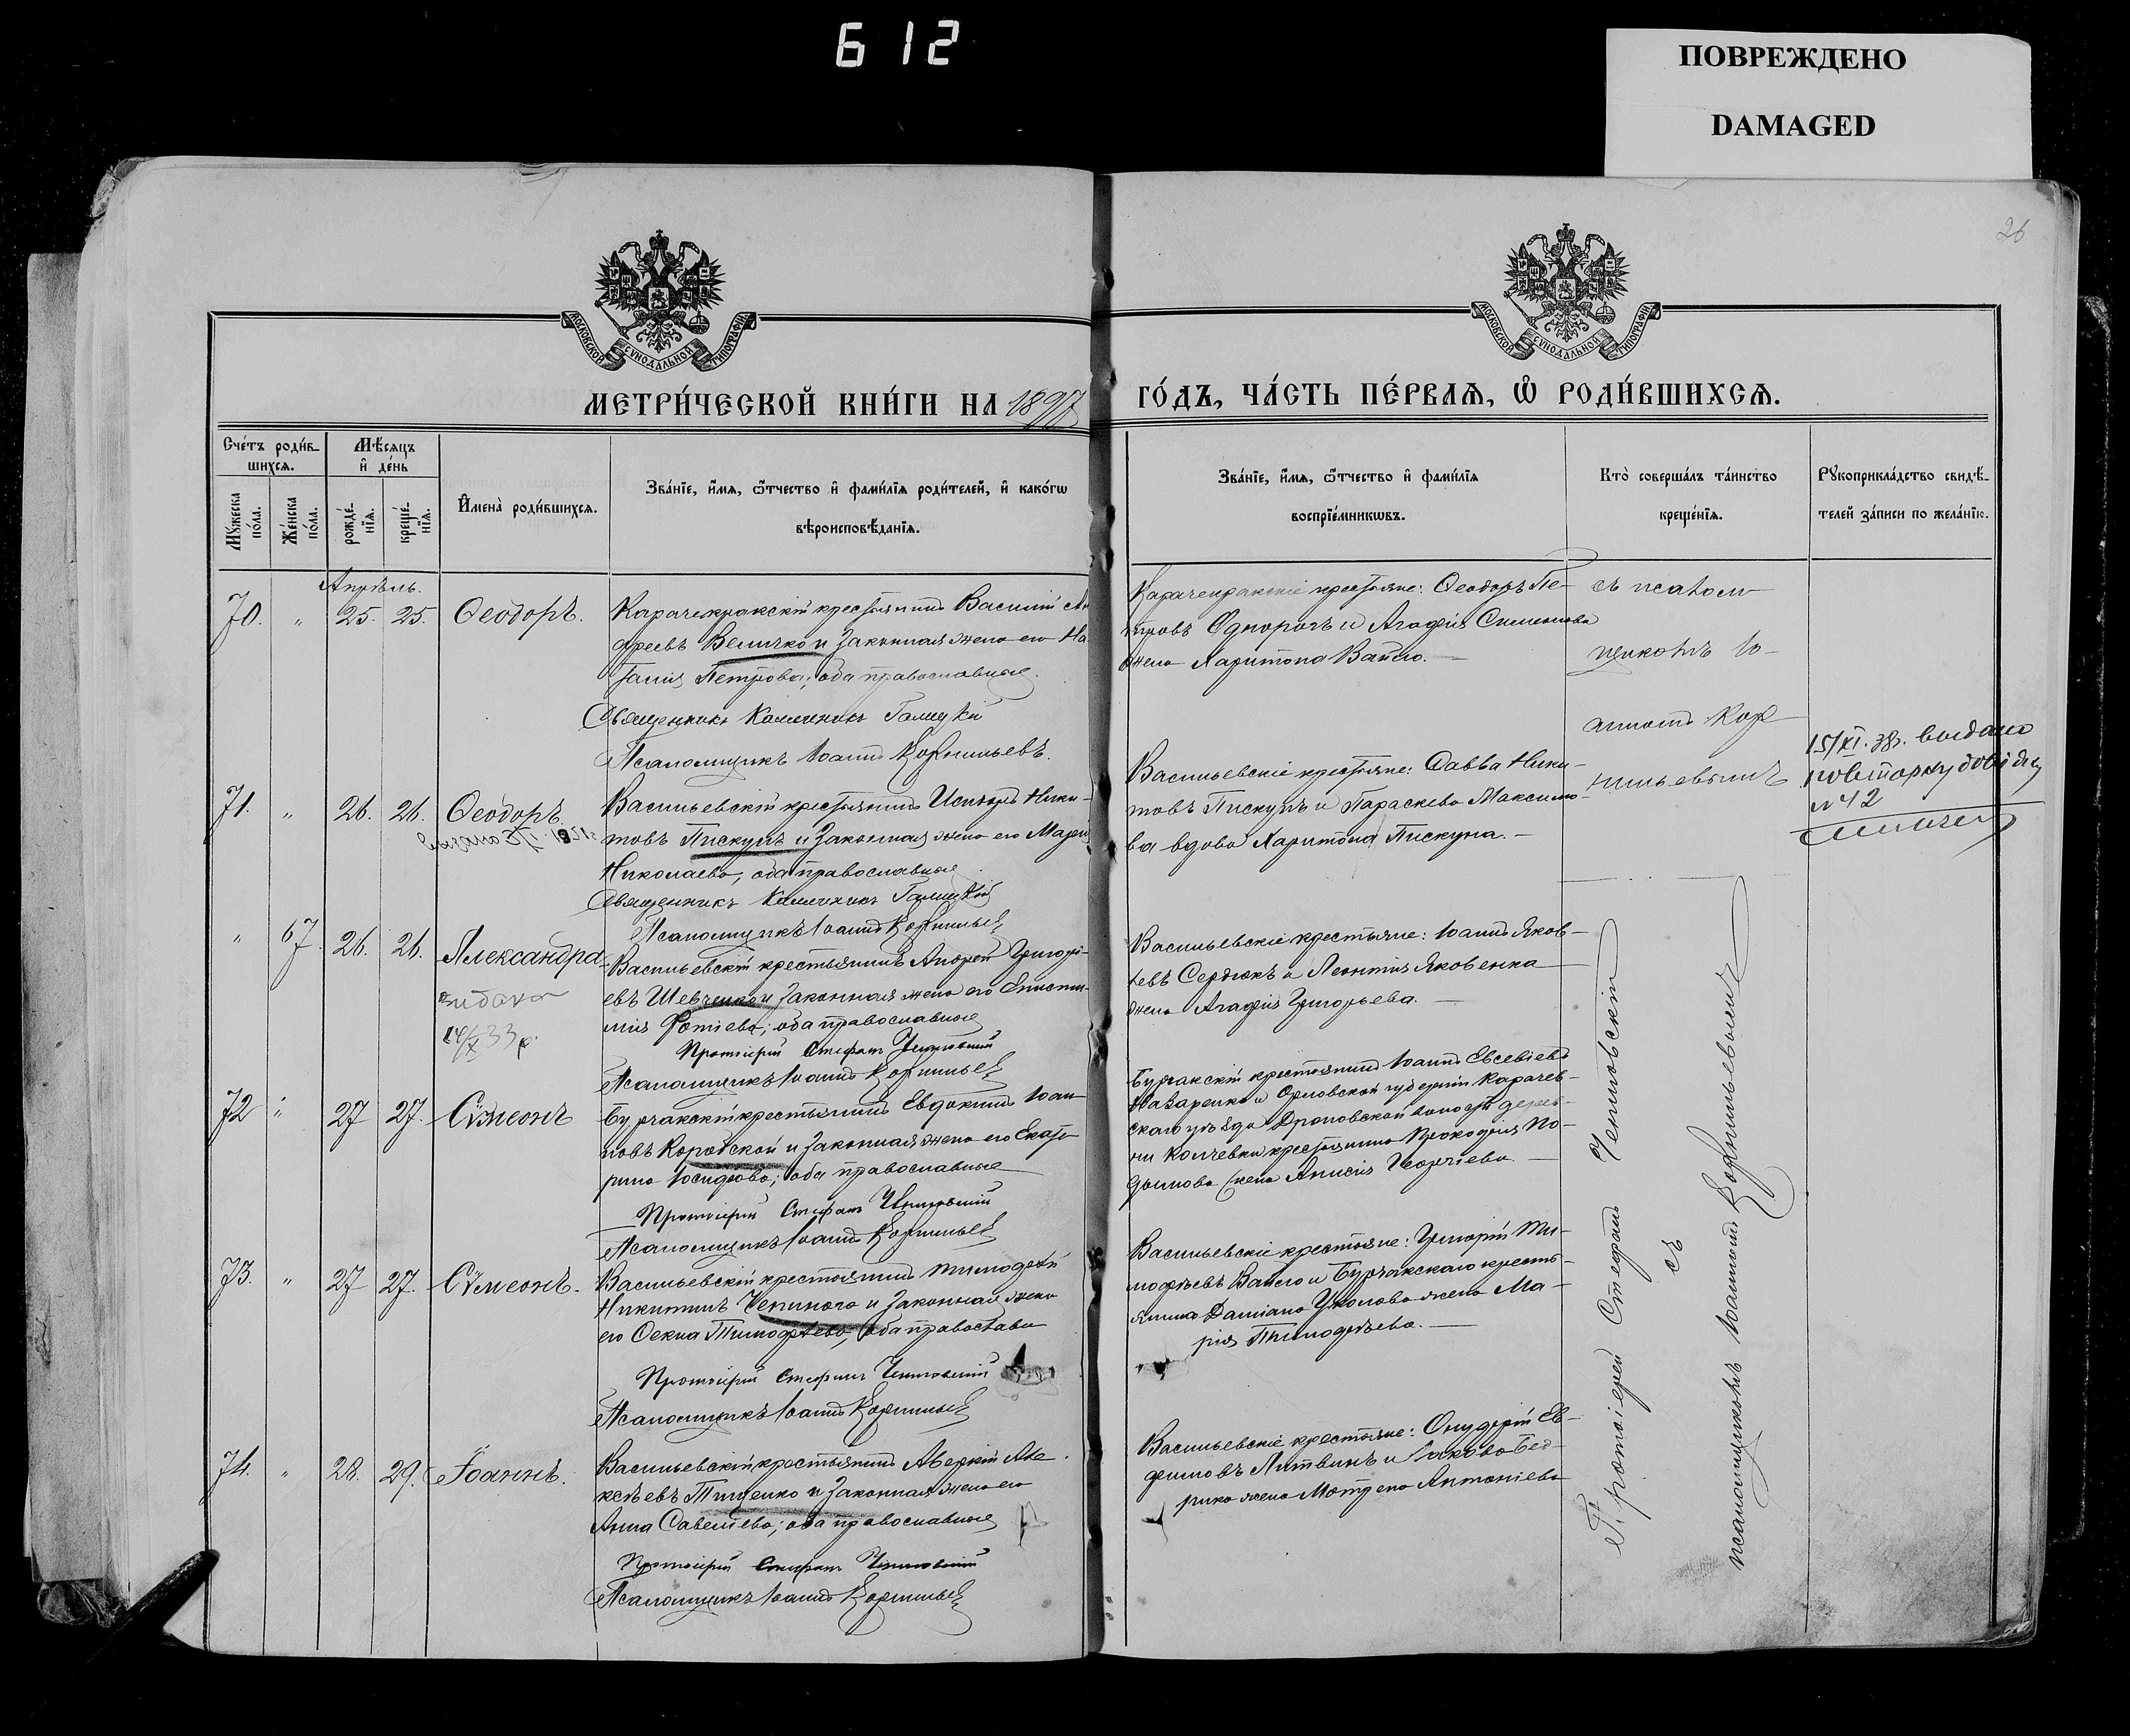 612
ПОВРЕЖДЕНО
DAMAGED
26
МОСКОВСКОЙ СѴНОДАЛЬНОЙ ТИПОГРАФІИ
МОСКОВСКОЙ СѴНОДАЛЬНОЙ ТИПОГРАФІИ
МЕТРИ́ЧЕСКОЙ КНИ́ГИ НА 1897
ГО́ДЪ, ЧА́СТЬ ПЕ́РВАѦ, Ѡ҆ РОДИ́ВШИХСѦ.
Сче́тъ роди́в-
шихсѧ.
Мꙋ́жеска
по́ла.
Же́нска
по́ла.
Мѣ́сѧцъ
и҆ де́нь
рожде́-
нїѧ.
креще́-
нїѧ.
И҆мена̀ роди́вшихсѧ.
Зва́нїе, и҆́мѧ, ѻ҆́тчество и҆ фами́лїѧ роди́телей, и҆ како́гѡ
вѣроисповѣ́данїѧ.
Зва́нїе, и҆́мѧ, ѻ҆́тчество и҆ фами́лїѧ
воспрїе́мникѡвъ.
Кто̀ соверша́лъ та́инство
креще́нїѧ.
Рꙋкоприкла́дство свидѣ́-
телей за́писи по жела́нїю.
Апрѣль.
70. " 25. 25. Ѳеодоръ.
Карачекракскій крестьянинъ Василій Ан
дреевъ Величко и законная жена его На
талія Петрова; оба православные.
Священникъ Каллиникъ Галицкій
Псаломщикъ Іоаннъ Корнильевъ.
Карачекракскіе крестьяне: Ѳеодоръ Пе-
тровъ Однорогъ и Агафія Симеонова
жена Харитона Вайло.
съ псалом
щикомъ Іо-
анномъ Кор
нильевымъ
71. " 26. 26. Ѳеодоръ.
Васильевскій крестьянинъ Исидоръ Ники-
товъ Пискунъ и законная жена его Марія
Николаева; оба православные
Священникъ Каллиникъ Галицкій
Псаломщикъ Іоаннъ Корнильев
Васильевскіе крестьяне: Савва Ники-
товъ Пискунъ и Параскева Максимо-
ва вдова Харитона Пискуна.
15/XI. 38. выдано
повторну довідку
№ 42
" 67. 26. 26. Александра
видана
14/X 33 р.
Васильевскій крестьянинъ Андрей Григорь-
евъ Шевченко и законная жена его Еписти-
мія Фотіева; оба православные
Протоіерей Стефанъ
Псаломщикъ Іоаннъ Корнильев
Васильевскіе крестьяне: Іоаннъ Яков-
левъ Сердюкъ и Леонтія Яковенка
жена Агафія Григорьева.
72 " 27 27. Сѵмеонъ
Бурчакскій крестьянинъ Евдокимъ Іоан
новъ Коробской и законная жена его Екате
рина Іосифова; оба православные
Протоіерей Стефанъ
Псаломщикъ Іоаннъ Корнильев
Бурчакскій крестьянинъ Іоаннъ Евсевіевъ
Назаренко и Орловской губерніи Карачев-
скаго уѣзда Дроновской волости дерев-
ни Колчевки крестьянина Прокофія
жена Анисія Георгіева
73. " 27 27. Сѵмеонъ.
Васильевскій крестьянинъ Тимофей
Никитинъ Чепинога и законная жена
его Ѳекла Тимофѣева; оба православн
Протоіерей Стефанъ
Псаломщикъ Іоаннъ Корнильев
Васильевскіе крестьяне: Григорій Ти-
мофѣевъ Вайло и Бурчакскаго кресть-
янина Даміана жена Ма-
рія Тимофѣева.
74. " 28. 29. Іоаннъ.
Васильевскій крестьянинъ Аверкій Але-
ксѣевъ Тищенко и законная жена его
Анна Савельева; оба православные
Протоіерей Стефанъ
Псаломщикъ Іоаннъ Корнильев
Васильевскіе крестьяне: Онуфрій Ев-
фимовъ Литвинъ и Іакова Бед-
рика жена Мотрена Антоніева
Протоіерей Стефанъ
съ
псаломщикомъ Іоанномъ Корнильевымъ